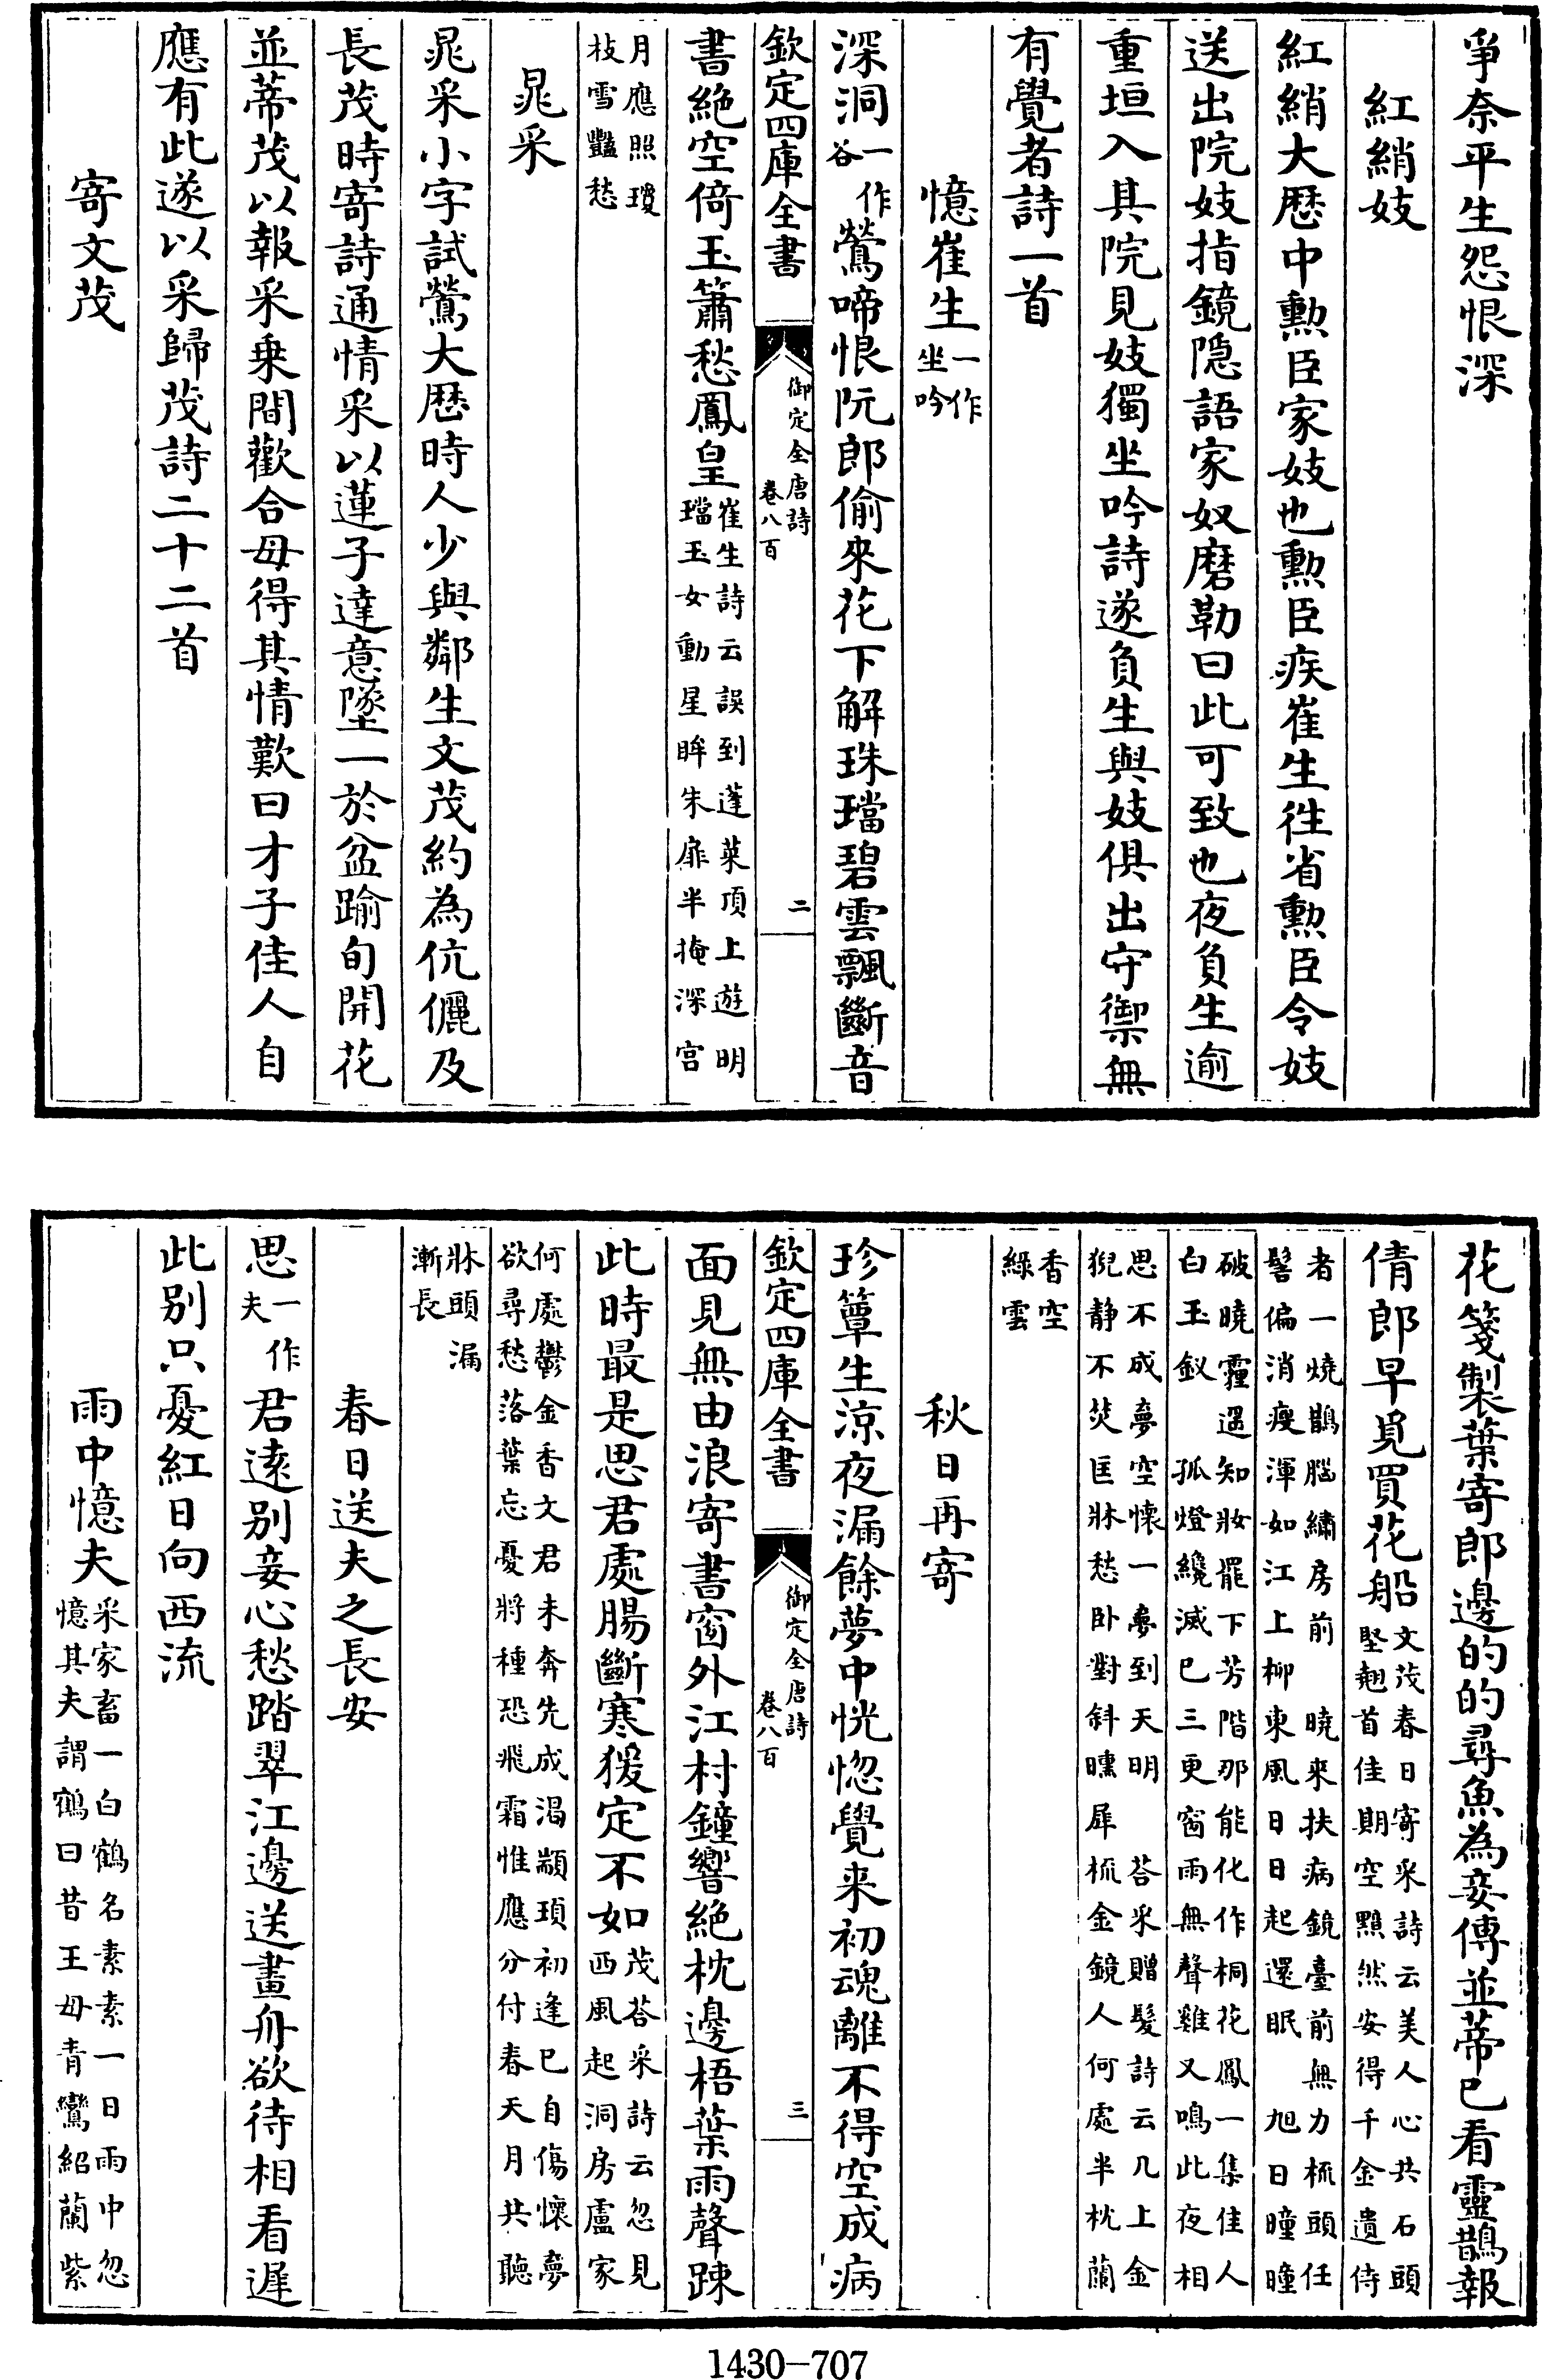 爭奈平生怨恨深
紅綃妓
紅綃大厯中勲臣家妓也勲臣疾崔生往省勲臣令妓
送出院妓指鏡隠語家奴磨勒曰此可致也夜負生逾
重垣入其院見妓獨坐吟詩遂負生與妓俱出守禦無
有覺者詩一首
憶崔生一作坐吟
深洞一作谷鶯啼恨阮郎偷來花下解珠璫碧雲飄斷音
欽定四庫全書 御定全唐詩 卷八百 二
書絶空倚玉簫愁鳳皇崔生詩云誤到蓬萊頂上遊明璫玉女動星眸朱扉半掩深宫
月應照瓊枝雪豔愁
晁采
晁采小字試鶯大厯時人少與鄰生文茂約為伉儷及
長茂時寄詩通情采以蓮子達意墜一於盆踰旬開花
並蒂茂以報采乗間歡合母得其情歎曰才子佳人自
應有此遂以采歸茂詩二十二首
寄文茂
花箋製葉寄郎邊的的尋魚為妾傳並蒂已看靈鵲報
倩郎早覓買花船文茂春日寄采詩云美人心共石頭堅翹首佳期空黯然安得千金遺侍
者一燒鵲腦繡房前 曉來扶病鏡臺前無力梳頭任髻偏消瘦渾如江上柳東風日日起還眠 旭日曈曈
破曉霾遥知妝罷下芳階那能化作桐花鳳一集佳人白玉釵 孤燈纔滅已三更窗雨無聲雞又鳴此夜相
思不成夢空懐一夢到天明 荅采贈髮詩云几上金猊静不焚匡牀愁卧對斜曛犀梳金鏡人何處半枕蘭
香空緑雲
秋日再寄
珍簟生凉夜漏餘夢中恍惚覺来初魂離不得空成病
欽定四庫全書 御定全唐詩 卷八百 三
面見無由浪寄書窗外江村鐘響絶枕邊梧葉雨聲踈
此時最是思君處腸斷寒猨定不如茂荅采詩云忽見西風起洞房盧家
何處鬱金香文君未奔先成渴顓頊初逢已自傷懷夢欲尋愁落葉忘憂將種恐飛霜惟應分付春天月共聽
牀頭漏漸長
春日送夫之長安
思一作夫君逺别妾心愁踏翠江邊送畫舟欲待相看遲
此别只憂紅日向西流
雨中憶夫采家畜一白鶴名素素一日雨中忽憶其夫謂鶴曰昔王母青鸞紹蘭紫
1430—707